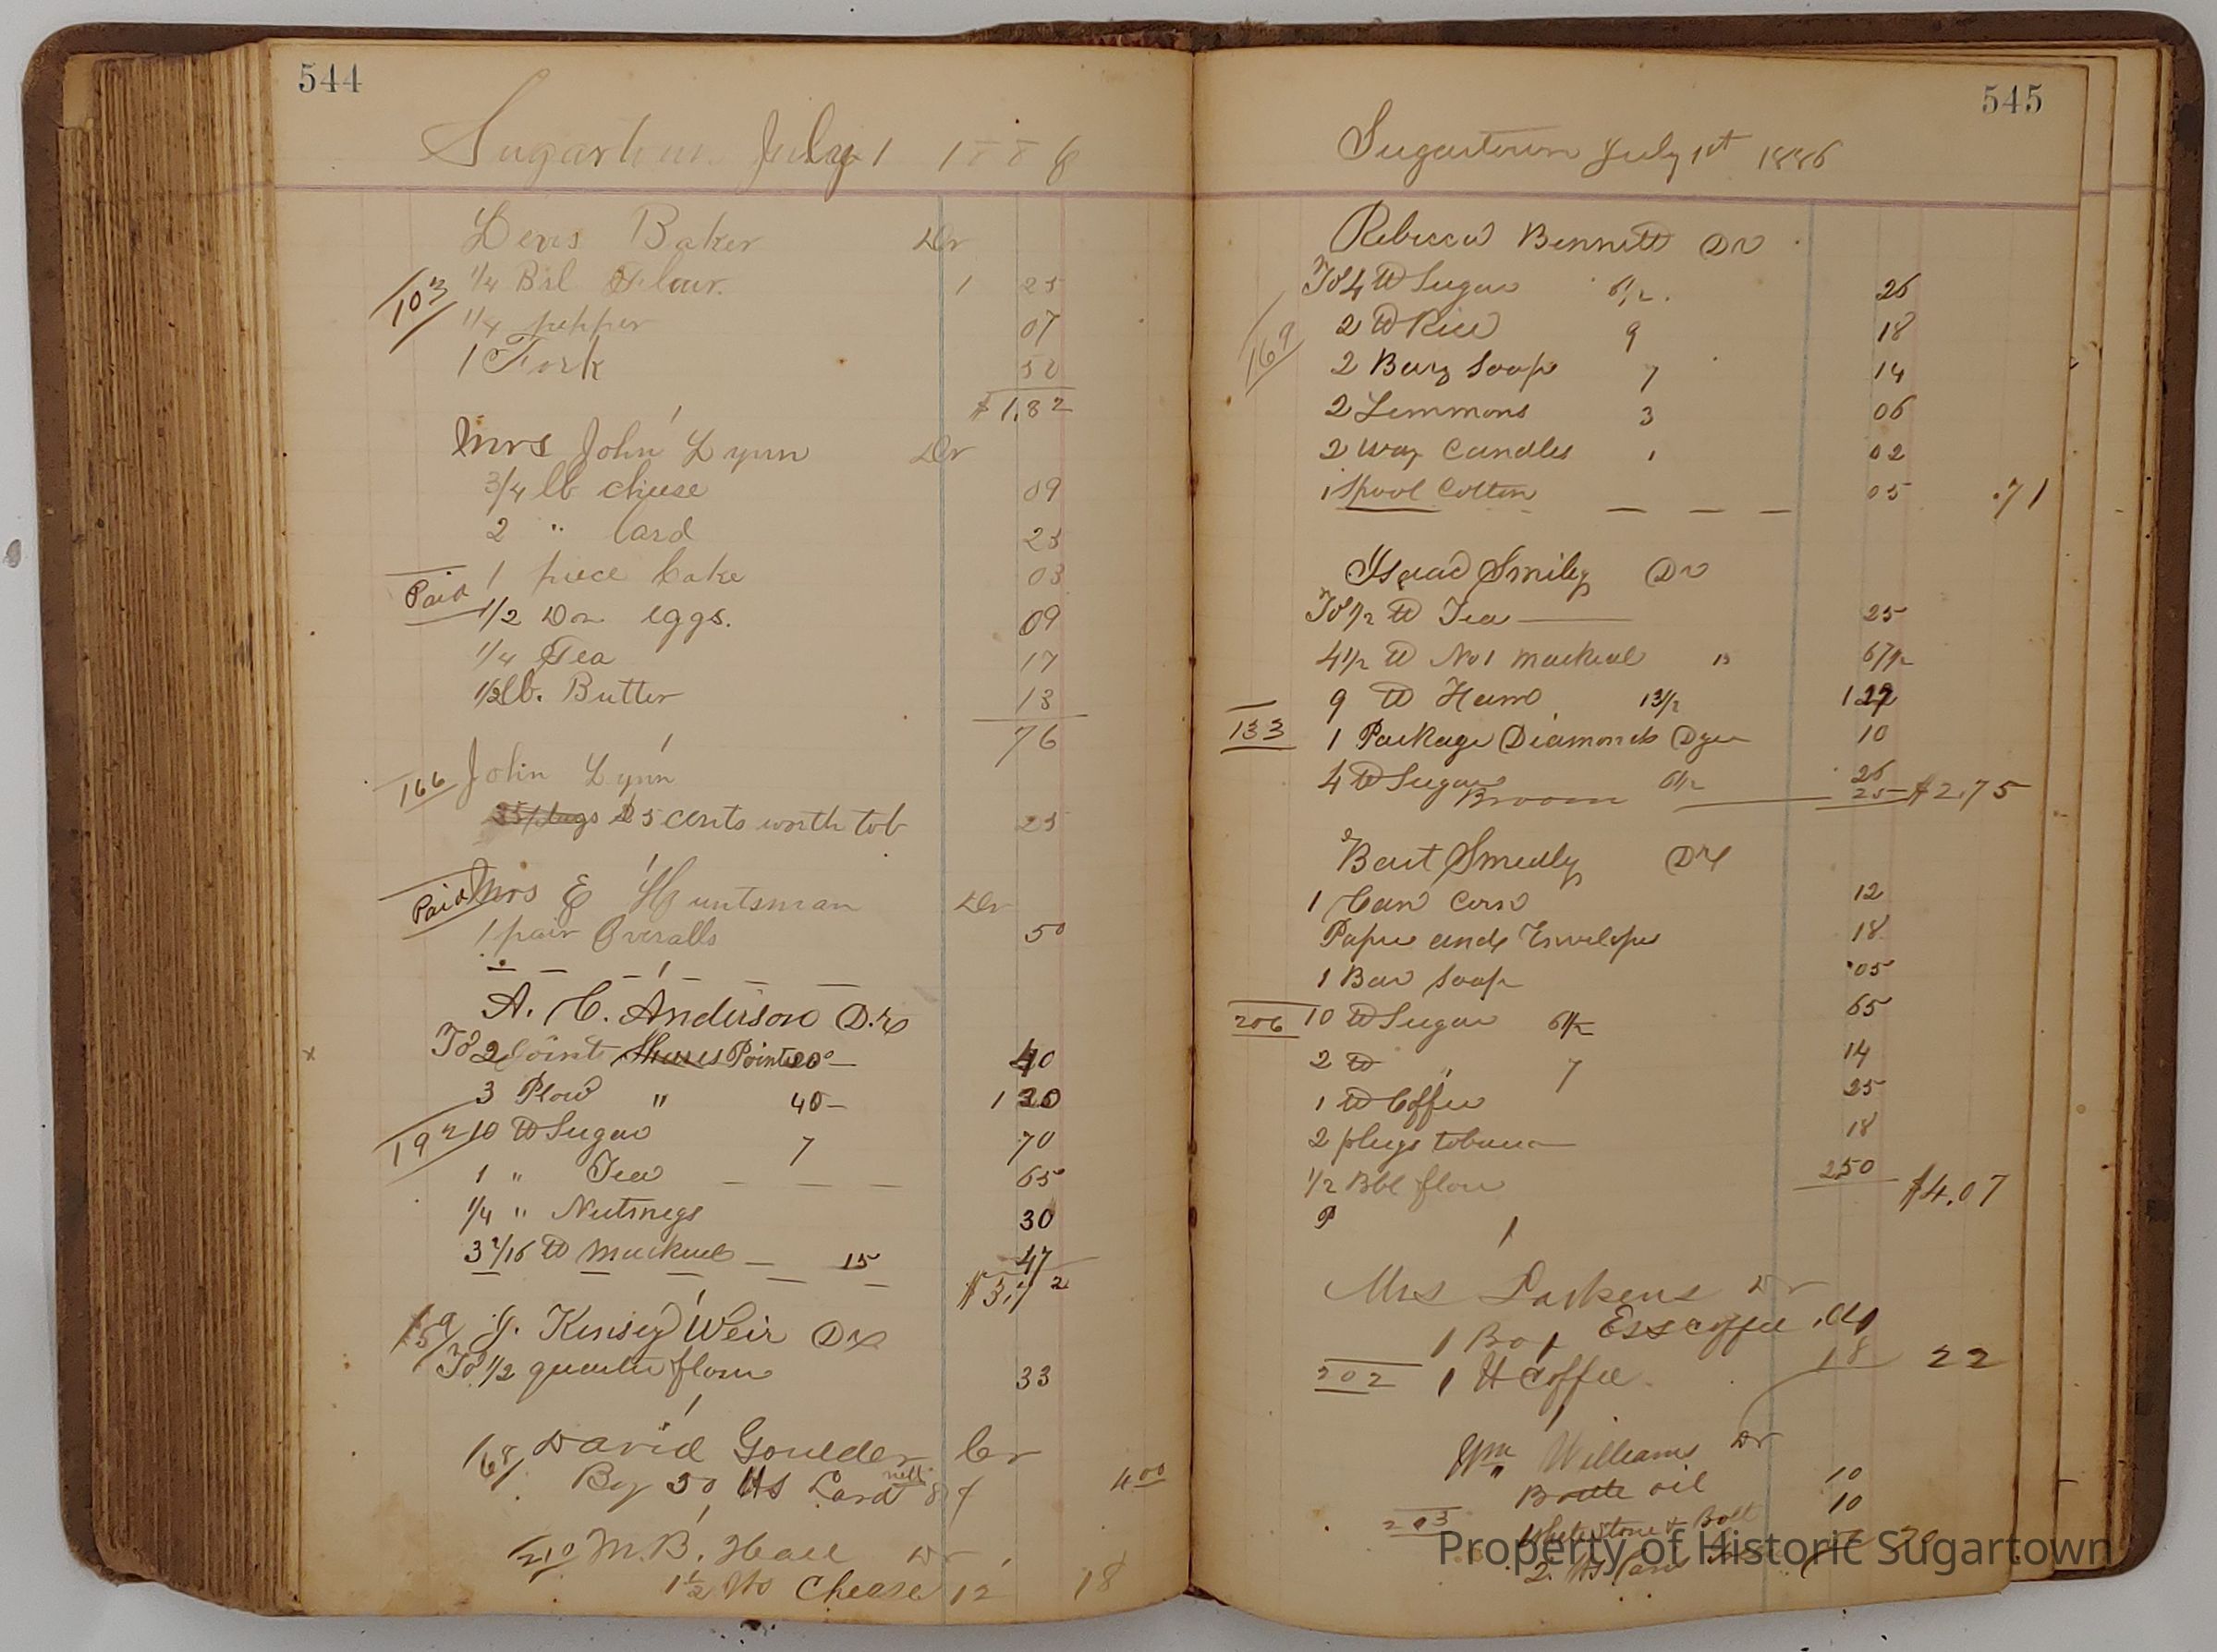 544
Sugartown July 1 1886
Levis Baker Dr
103
1/4 Bbl Flour. 1 25
1/4 pepper 07
1 Fork 50
$1.82
Mrs John Lynn Dr
3/4 lb cheese 09
2 " Lard 25
Paid
1 piece Cake 03
1/2 Doz eggs. 09
1/4 Tea 17
1/2 lb. Butter 13
76
166 John Lynn
25 cents worth tob 25
Paid Mrs E Huntsman Dr
1 pair Overalls 50
A. C. Anderson Dr
To 2 Points 20 40
3 Plow " 40 1 20
192
10 lb Sugar 7 70
1 " Tea 65
1/4 " Nutmegs 30
3 2/16 lb Mackrel 15 47
$3.72
159 J. Kinsey Weir Dr
To 1/2 quarter flour 33
168 David Goulder Cr
By 50 lbs Lard nett 8 4 00
210 M. B. Hall Dr
1 1/2 lbs Cheese 12 18
545
Sugartown July 1st 1886
Rebecca Bennett Dr
To 4 lb Sugar 6 1/2 26
169
2 lb Rice 9 18
2 Bars Soap 7 14
2 Lemmons 3 06
2 Wax Candles 1 02
1 Spool Cotton 05 .71
Isaac Smiley Dr
To 1/2 lb Tea 25
4 1/2 lb No 1 Mackeral 15 67 1/2
9 lb Ham 13 1/2
133
1 Package Diamond Dyes 10
4 lb Sugar 6 1/2 26
Broom 25 $2.75
Bart Smedly Dr
1 Can Corn 12
Paper and Envelopes 18
1 Bar Soap 05
206 10 lb Sugar 6 1/2 65
2 lb " 7 14
1 lb Coffee 25
2 plugs tobacco 18
1/2 Bbl flour 2 50 $4.07
P
Mrs Larkens Dr
1 Box Ess coffee .04
202 1 lb Coffee 18 22
Wm Williams Dr
Bottle oil 10
203
Whetstone & Bolt 10
2 lbs
Property of Historic Sugartown